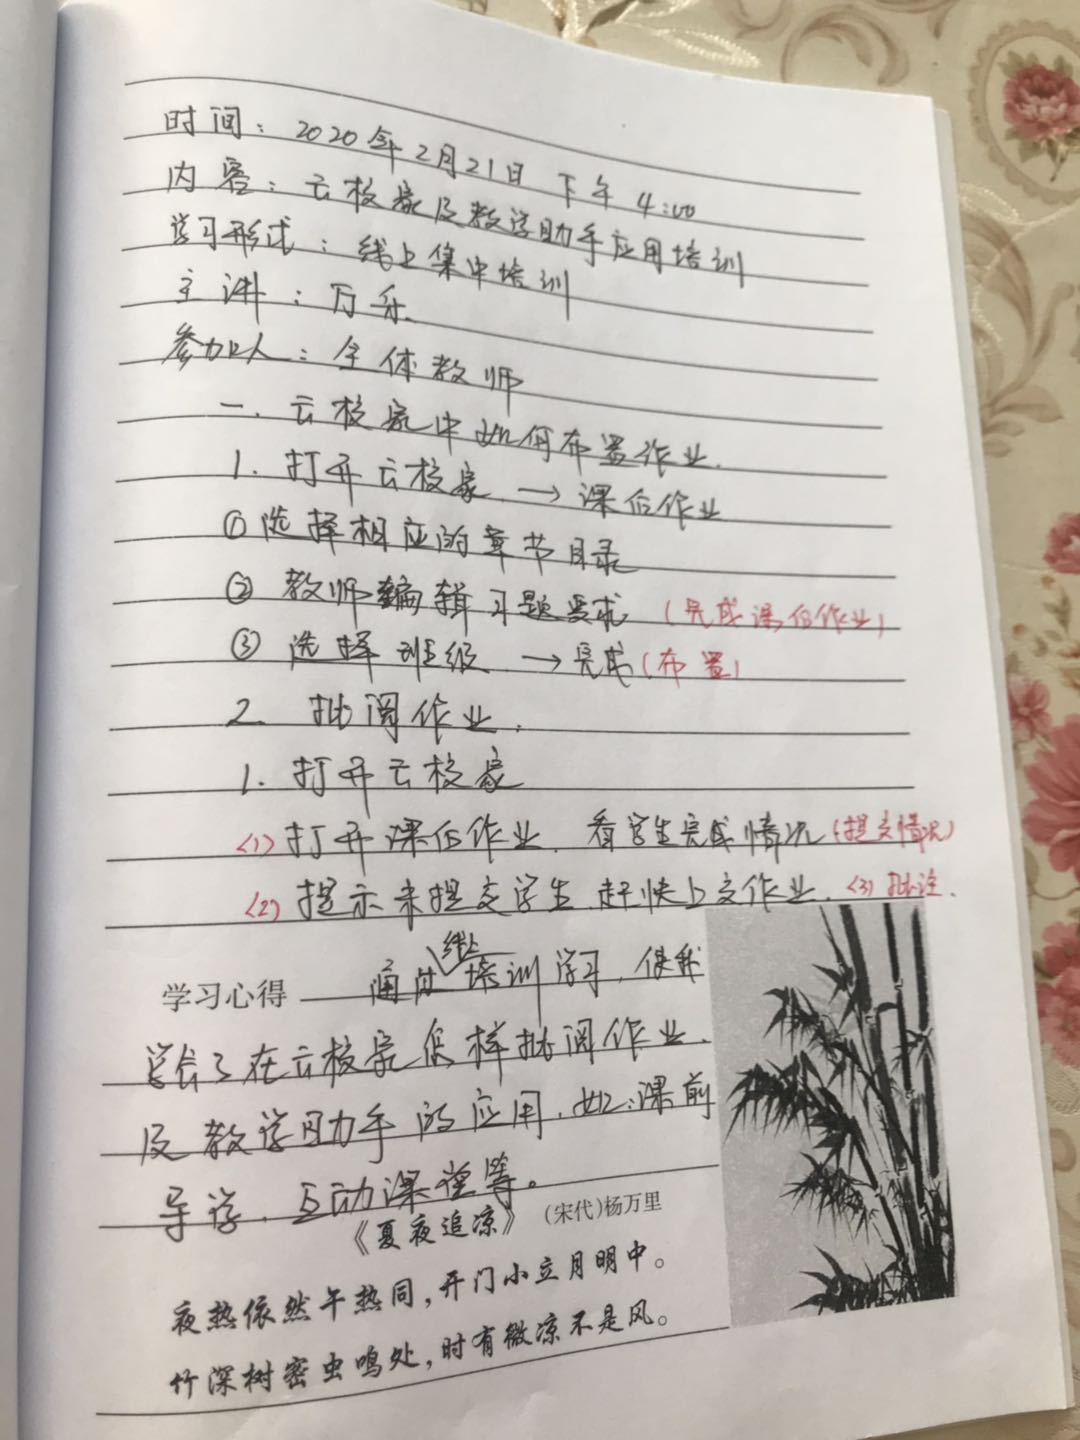 时间：2020年2月21日 下午4:00
内容：云校家及教学助手应用培训
学习形式：线上集中培训
主讲：万乐
参加人：全体教师
一.云校家中如何布置作业.
1.打开云校家 → 课后作业
①选择相应的章节目录
②教师编辑习题要求 (完成课后作业)
③选择班级 → 完成(布置)
2. 批阅作业.
1.打开云校家
(1)打开课后作业.看学生完成情况(提交情况)
(2)提示未提交学生.赶快上交作业.(3)批注.
学习心得 通过线上培训学习，使我
学会了在云校家怎样批阅作业.
及教学助手的应用.如:课前
导学.互动课堂等。
《夏夜追凉》 (宋代)杨万里
夜热依然午热同，开门小立月明中。
竹深树密虫鸣处，时有微凉不是风。